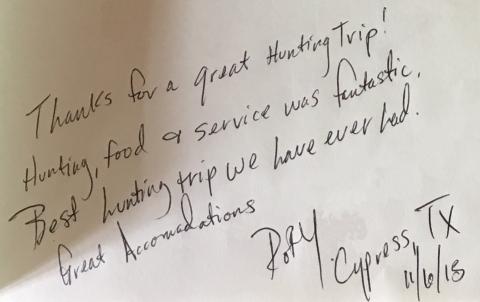 Thanks for a great Hunting Trip!
Hunting, food & service was fantastic.
Best hunting trip we have ever had.
Great Accomadations
Cypress, TX
11/6/18